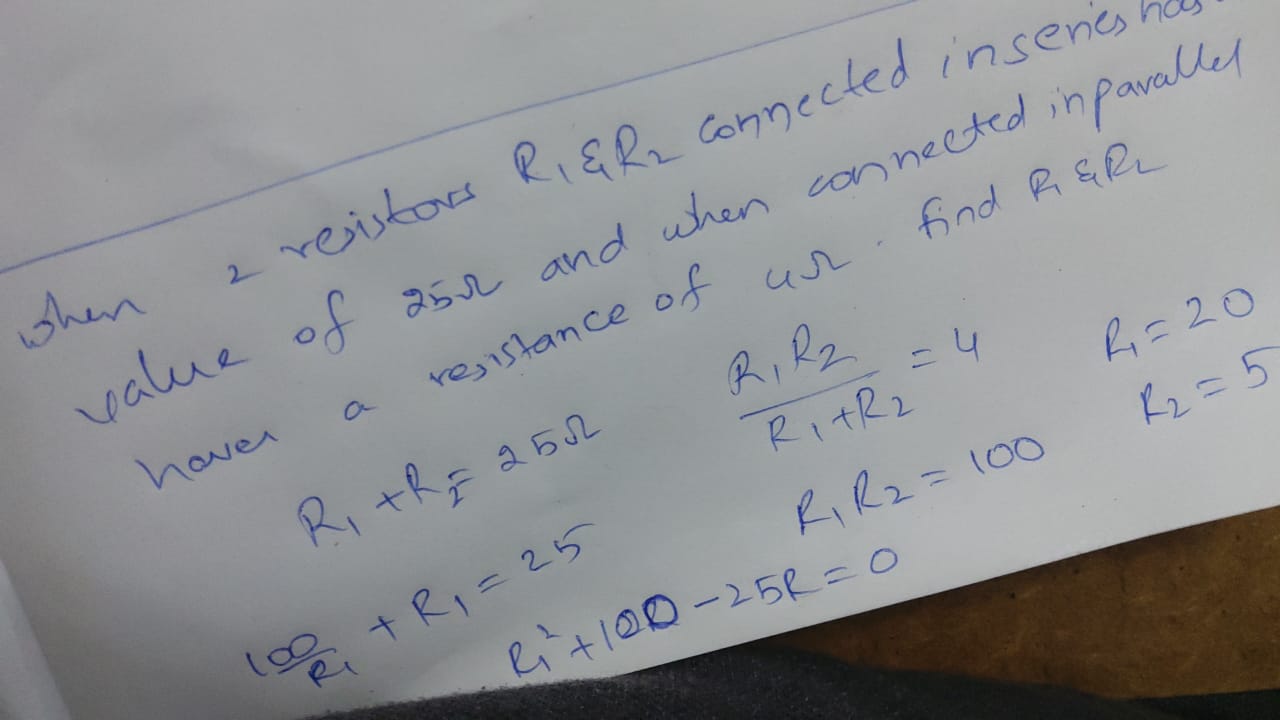 when 2 resistors R₁ & R₂ connected in series has
value of 25Ω and when connected in parallel
haves a resistance of 4Ω. find R₁ & R₂
R₁ + R₂ = 25Ω
R₁R₂ / R₁+R₂ = 4
R₁ = 20
R₂ = 5
R₁R₂ = 100
100/R₁ + R₁ = 25
R₁² + 100 - 25R = 0